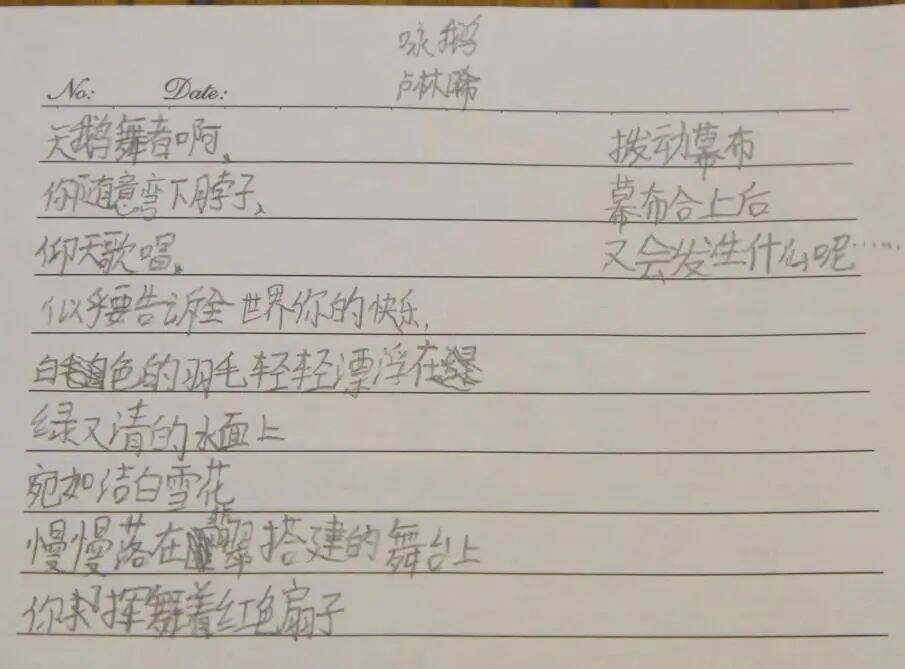 咏鹅
卢林晞
No: Date:
天鹅舞者啊、
你随意弯下脖子、
仰天歌唱、
似乎要告诉全世界你的快乐,
白色的羽毛轻轻漂浮在
绿又清的水面上
宛如洁白雪花
慢慢落在翡翠搭建的舞台上
你挥舞着红色扇子
拨动幕布
幕布合上后
又会发生什么呢……